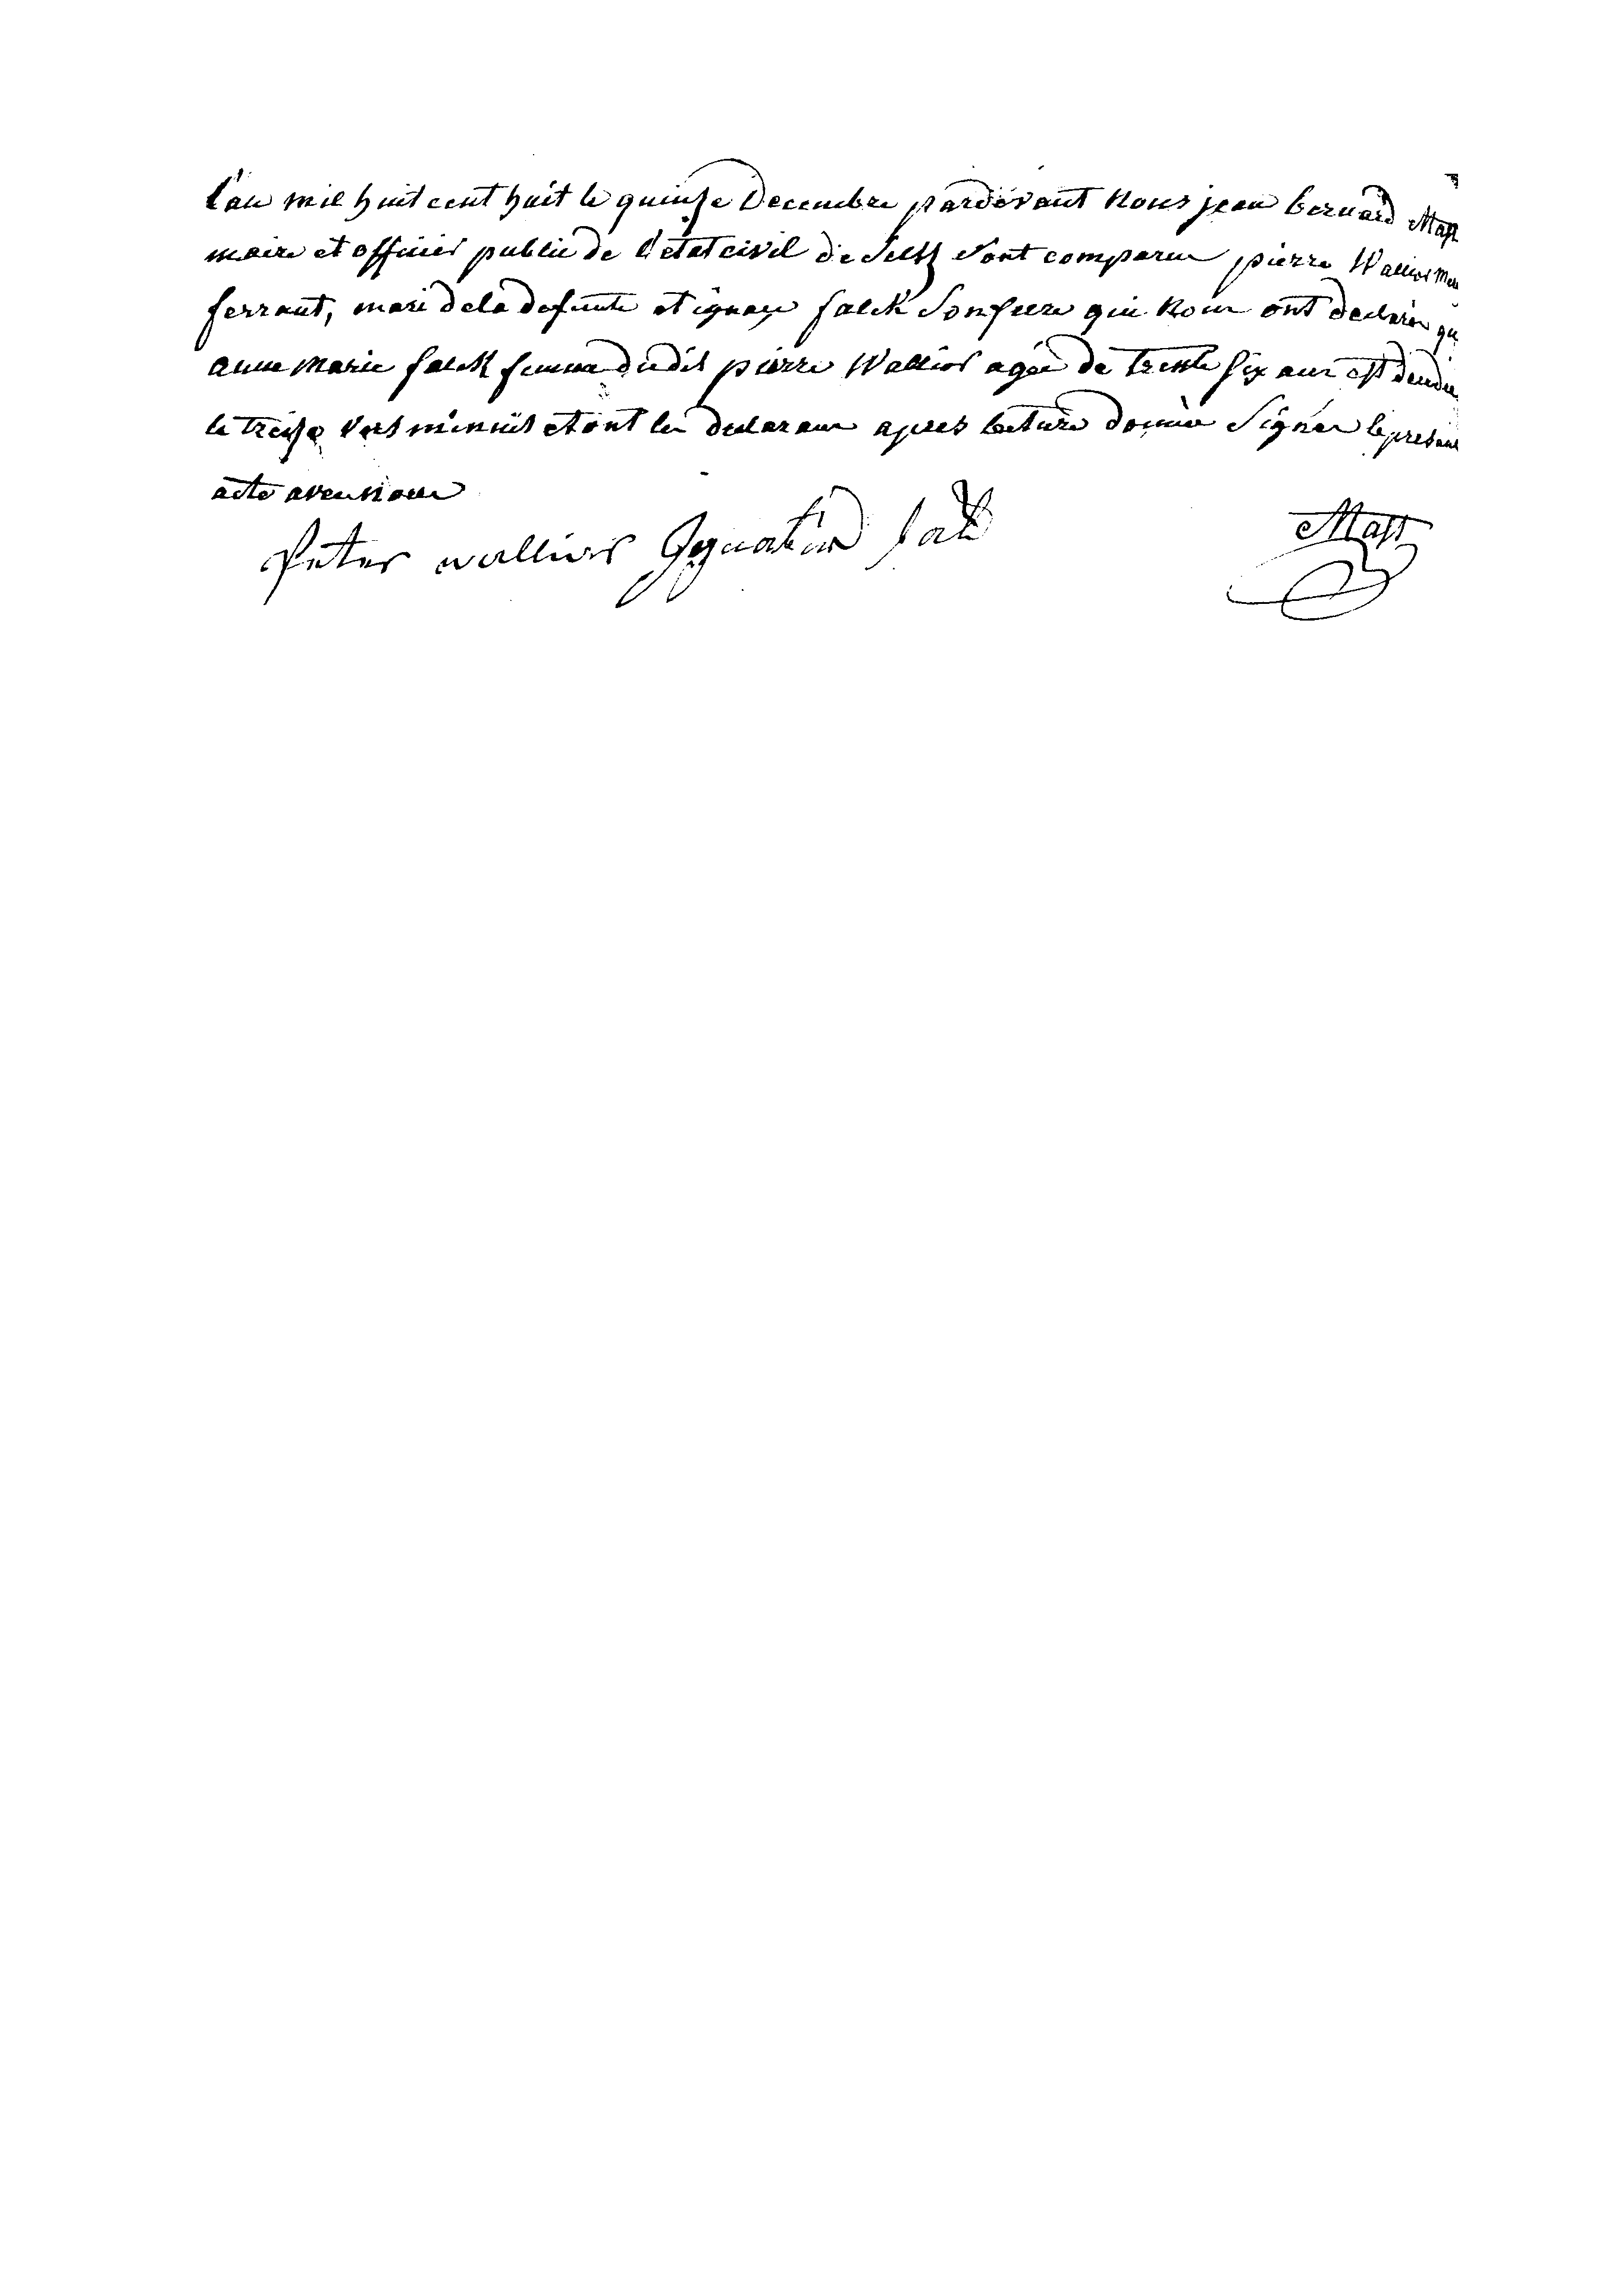 l'an mil huit cent huit le quinse Decembre pardevant nous jean bernard Mast
maire et officier public de l'etat civil de Seltz sont comparus pierre Wallior
ferrant, mari de la defunte et ignace falck son frere qui nous ont declarés que
anne marie falck femme dudit pierre Wallior agée de trente six ans est
le treise vers minuit et ont les declarans apres lecture donnée signés le present
acte avec nous
Peter wallior Ignatius falck Mast